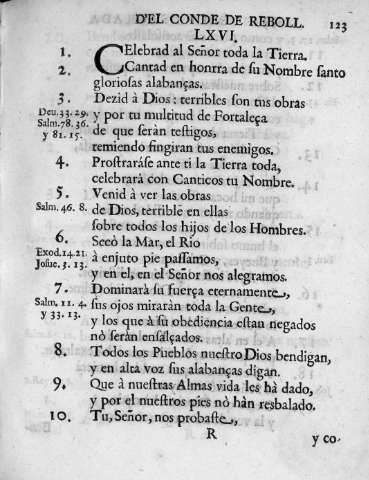 D'EL CONDE DE REBOLL. 123
LXVI.
1. CElebrad al Señor toda la Tierra.
2. Cantad en honrra de ſu Nombre ſanto
glorioſas alabanças.
3. Dezid à Dios: terribles ſon tus obras
Deu. 33. 29. y por tu multitud de Fortaleça
Salm. 78. 36. de que ſeràn teſtigos,
y 81. 15. temiendo fingiran tus enemigos.
4. Proſtraráſe ante ti la Tierra toda,
celebrarà con Canticos tu Nombre.
5. Venid à ver las obras
Salm. 46. 8. de Dios, terrible en ellas
ſobre todos los hijos de los Hombres.
6. Secò la Mar, el Rio
Exod. 14. 21. à enjuto pie paſſamos,
Joſue. 3. 13. y en el, en el Señor nos alegramos.
7. Dominarà ſu fuerça eternamente,
Salm. 11. 4. ſus ojos miraràn toda la Gente,
y 33. 13. y los que à ſu obediencia eſtan negados
nò ſeràn enſalçados.
8. Todos los Pueblos nueſtro Dios bendigan,
y en alta voz ſus alabanças digan.
9. Que à nueſtras Almas vida les hà dado,
y por el nueſtros pies nò hàn resbalado.
10. Tu, Señor, nos probaſte,
R y co-